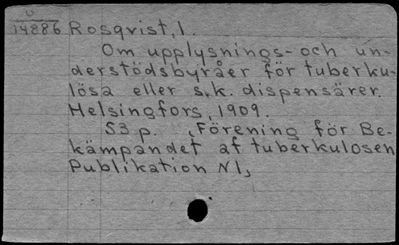 U
14886 Rosqvist, I.
Om upplysnings- och un-
derstödsbyråer för tuberku-
lösa eller s.k. dispensärer.
Helsingfors, 1909.
53 p. (Förening för Be-
kämpandet af tuberkulosen
Publikation N 1)